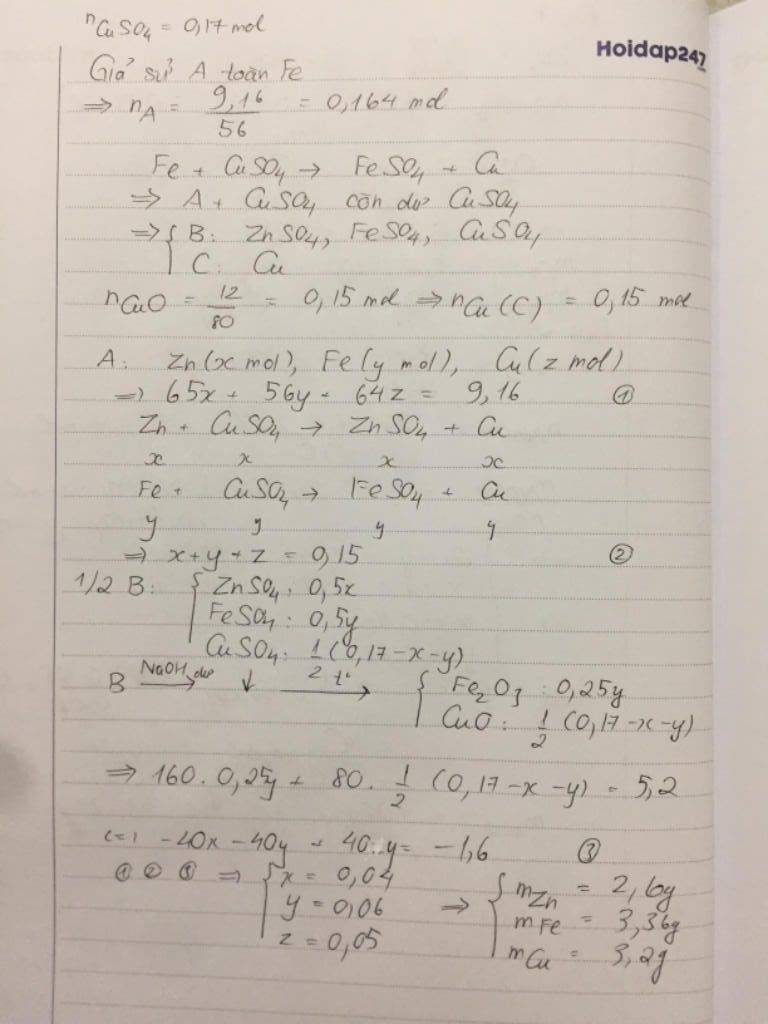 nCuSO4 = 0,17 mol
Hoidap247
Giả sử A toàn Fe
=> nA = 9,16/56 = 0,164 mol
Fe + CuSO4 → FeSO4 + Cu
=> A + CuSO4 còn dư CuSO4
=> { B: ZnSO4, FeSO4, CuSO4
C: Cu
nCuO = 12/80 = 0,15 mol => nCu(C) = 0,15 mol
A: Zn(x mol), Fe(y mol), Cu(z mol)
=> 65x + 56y + 64z = 9,16 ①
Zn + CuSO4 → ZnSO4 + Cu
x x x x
Fe + CuSO4 → FeSO4 + Cu
y y y y
=> x+y+z = 0,15 ②
1/2 B: { ZnSO4: 0,5x
FeSO4: 0,5y
CuSO4: 1/2 (0,17-x-y)
B NaOH dư → ↓ t° → { Fe2O3: 0,25y
CuO: 1/2 (0,17-x-y)
=> 160.0,25y + 80. 1/2 (0,17-x-y) = 5,2
<=> -40x - 40y + 40.y = -1,6 ③
① ② ③ => { x = 0,04
y = 0,06
z = 0,05
=> { mZn = 2,6g
mFe = 3,36g
mCu = 3,2g